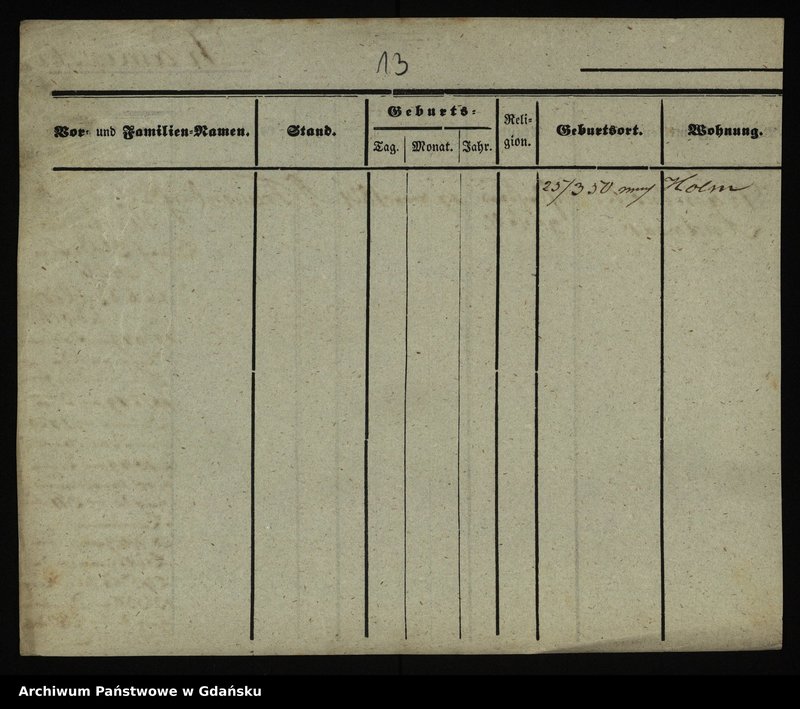 13
Vor- und Familien-Namen.
Stand.
Geburts-
Tag.
Monat.
Jahr.
Reli-
gion.
Geburtsort.
Wohnung.
25/350 Holm
Archiwum Państwowe w Gdańsku